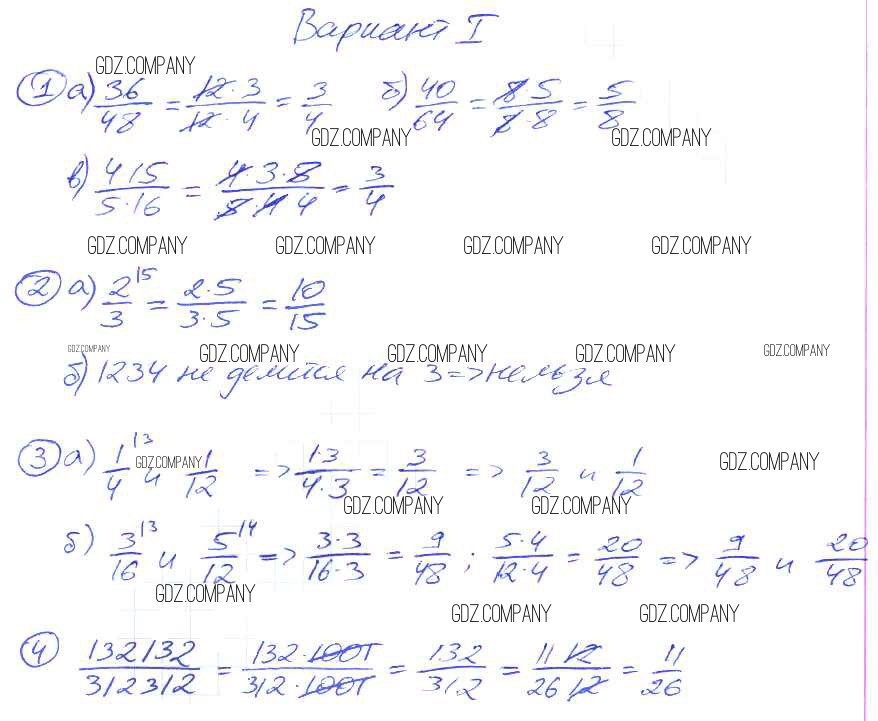 Вариант I
GDZ.COMPANY
① а) 36/48 = 12·3/12·4 = 3/4 б) 40/64 = 8·5/8·8 = 5/8
GDZ.COMPANY GDZ.COMPANY
в) 4·15/5·16 = 4·3·5/5·4·4 = 3/4
GDZ.COMPANY GDZ.COMPANY GDZ.COMPANY GDZ.COMPANY
② а) 2/3 |5 = 2·5/3·5 = 10/15
GDZ.COMPANY GDZ.COMPANY GDZ.COMPANY GDZ.COMPANY GDZ.COMPANY
б) 1234 не делится на 3 => нельзя
③ а) 1/4 |3 и 1/12 => 1·3/4·3 = 3/12 => 3/12 и 1/12
GDZ.COMPANY GDZ.COMPANY
GDZ.COMPANY GDZ.COMPANY
б) 3/16 |3 и 5/12 |4 => 3·3/16·3 = 9/48 ; 5·4/12·4 = 20/48 => 9/48 и 20/48
GDZ.COMPANY
GDZ.COMPANY GDZ.COMPANY
④ 132132/312312 = 132·1001/312·1001 = 132/312 = 11·12/26·12 = 11/26